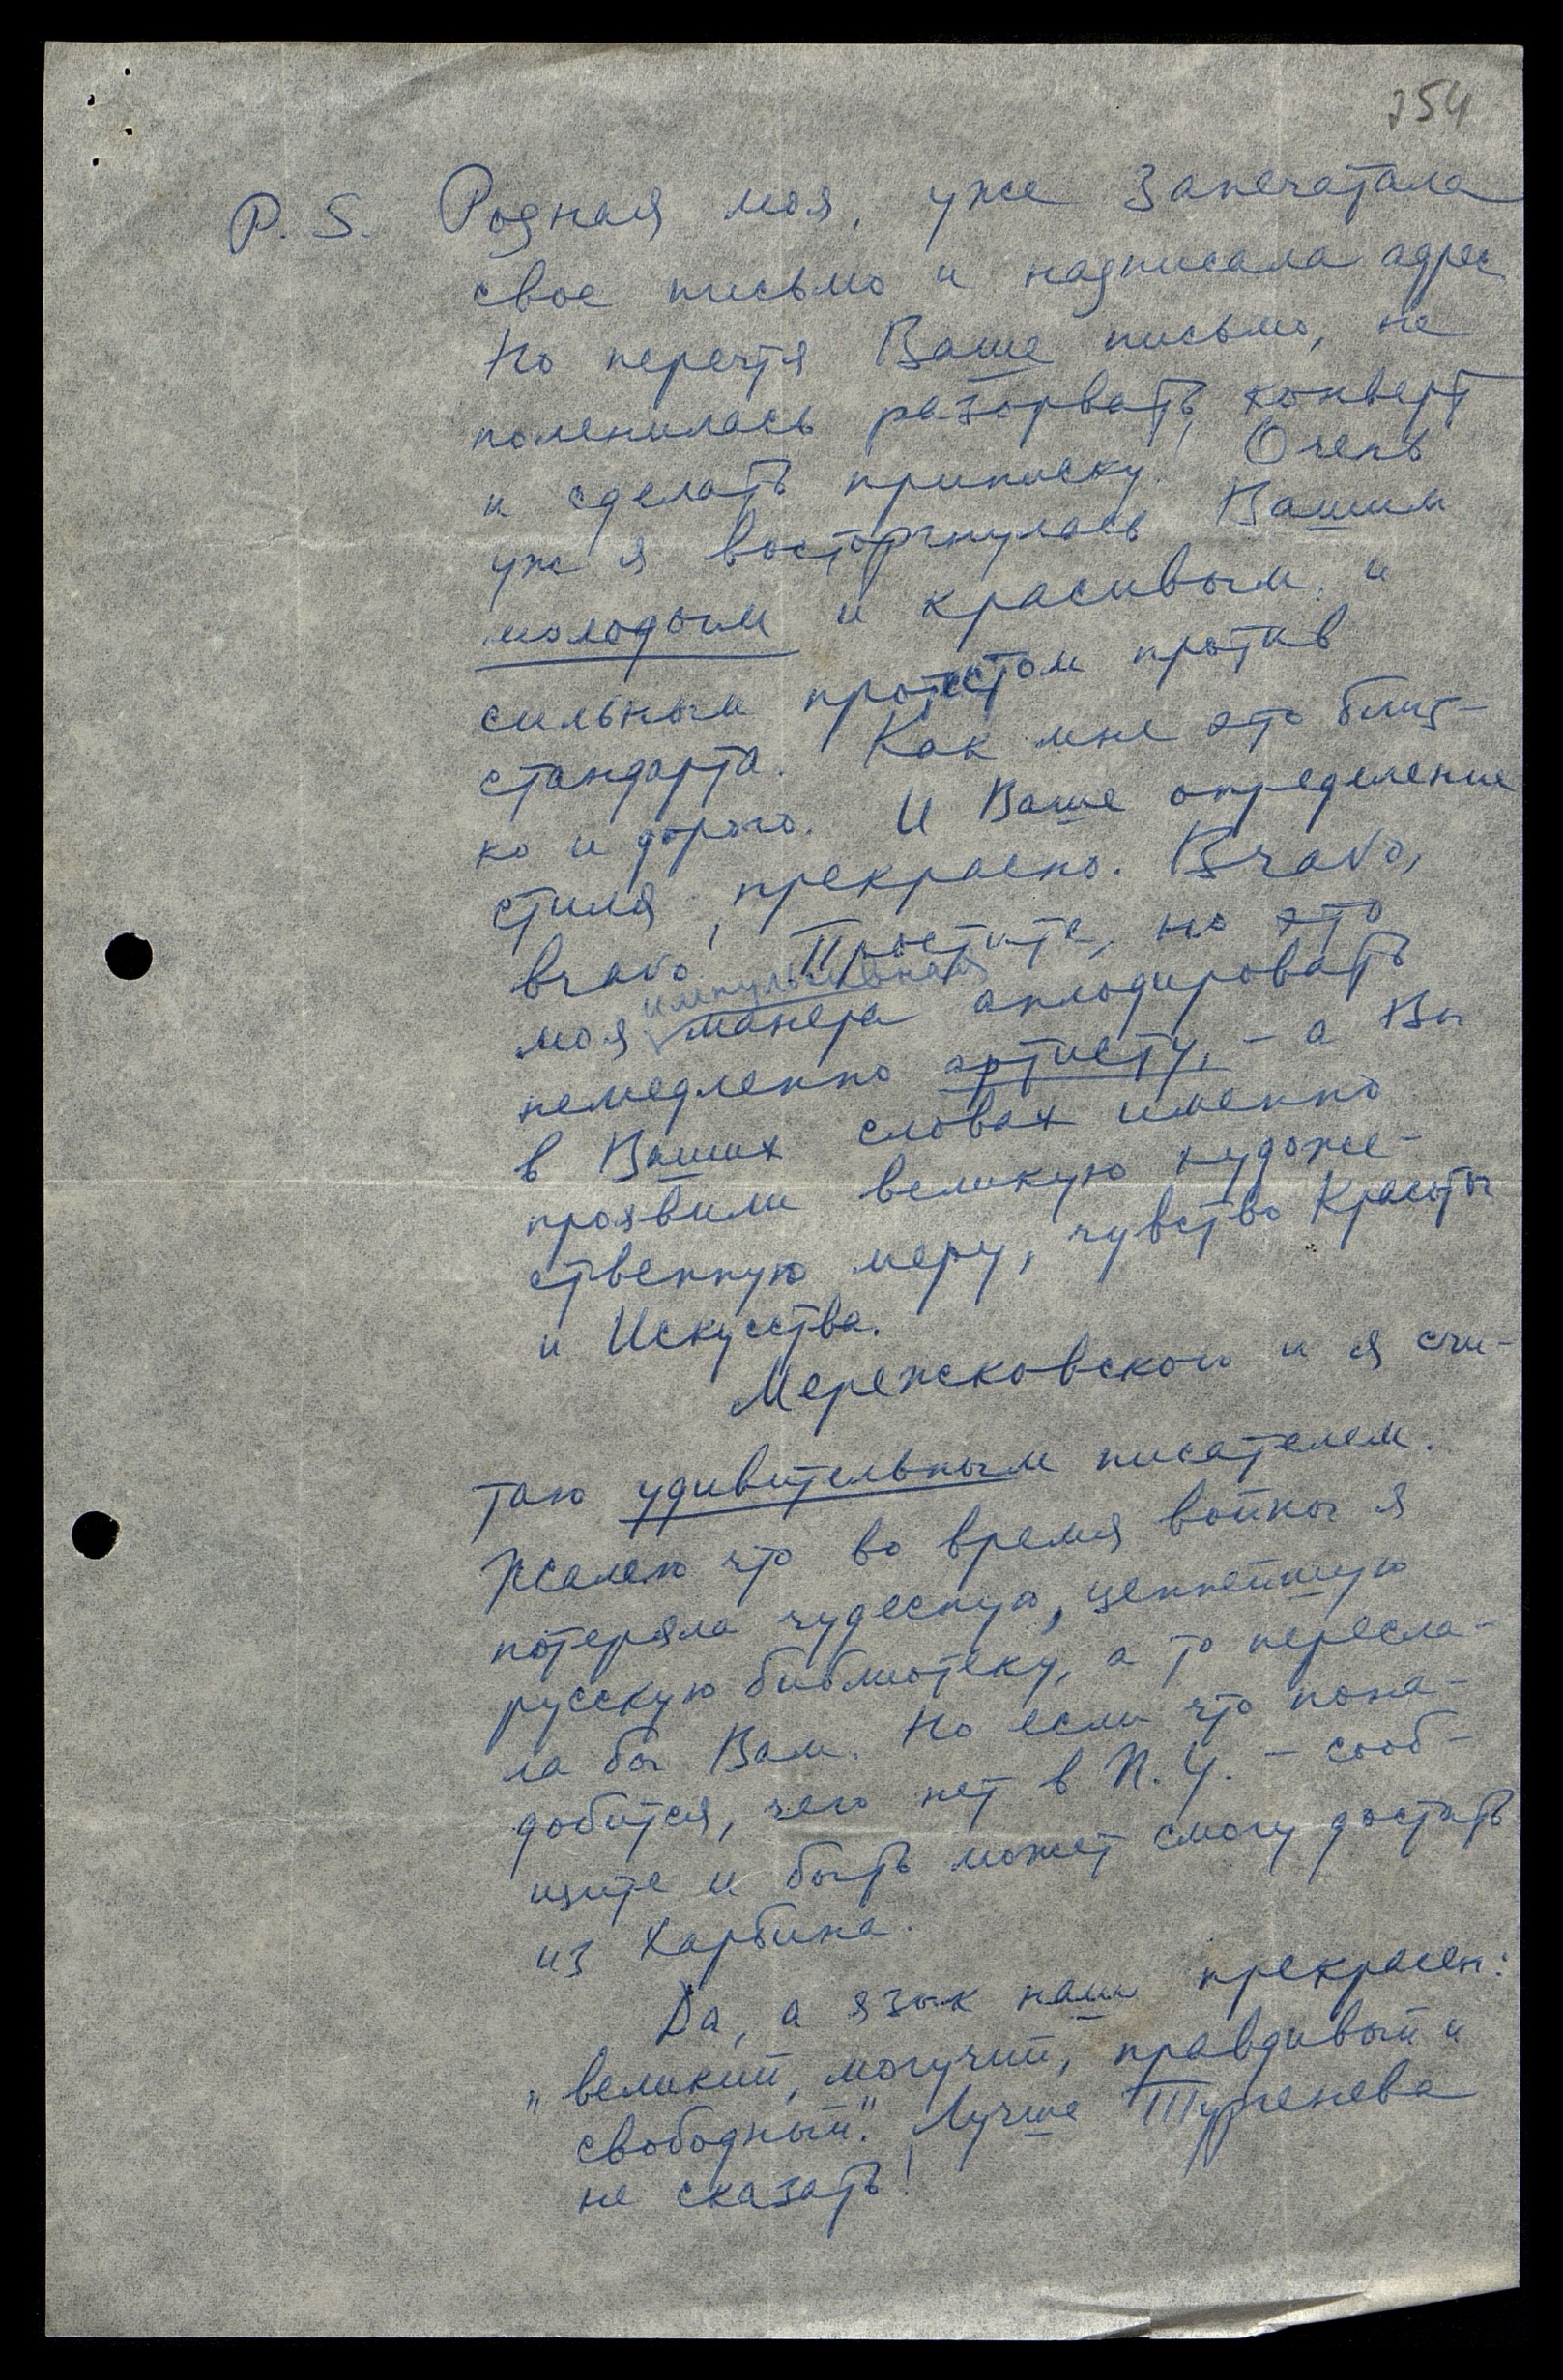 254
P. S. Родная моя, уже запечатала
свое письмо и надписала адрес
Но перечтя Ваше письмо, не
поленилась разорвать конверт
и сделать приписку! Очень
уж я восторгнулась Вашим
молодым и красивым, и
сильным протестом против
стандарта. Как мне это близ-
ко и дорого. И Ваше определение
стиля, прекрасно. Bravo,
bravo! Простите, но это
импульсивная
моя манера аплодировать
немедленно артисту, - а Вы
в Ваших словах именно
проявили великую художе-
ственную меру, чувство Красоты
и Искусства.
Мережковского и я счи-
таю удивительным писателем.
Жалею что во время войны я
потеряла чудесную, ценнейшую
русскую библиотеку, а то пересла-
ла бы Вам. Но если что пона-
добится, чего нет в N. Y. - сооб-
щите и быть может смогу достать
из Харбина.
Да, а язык наш прекрасен:
„великий, могучий, правдивый и
свободный". Лучше Тургенева
не сказать!